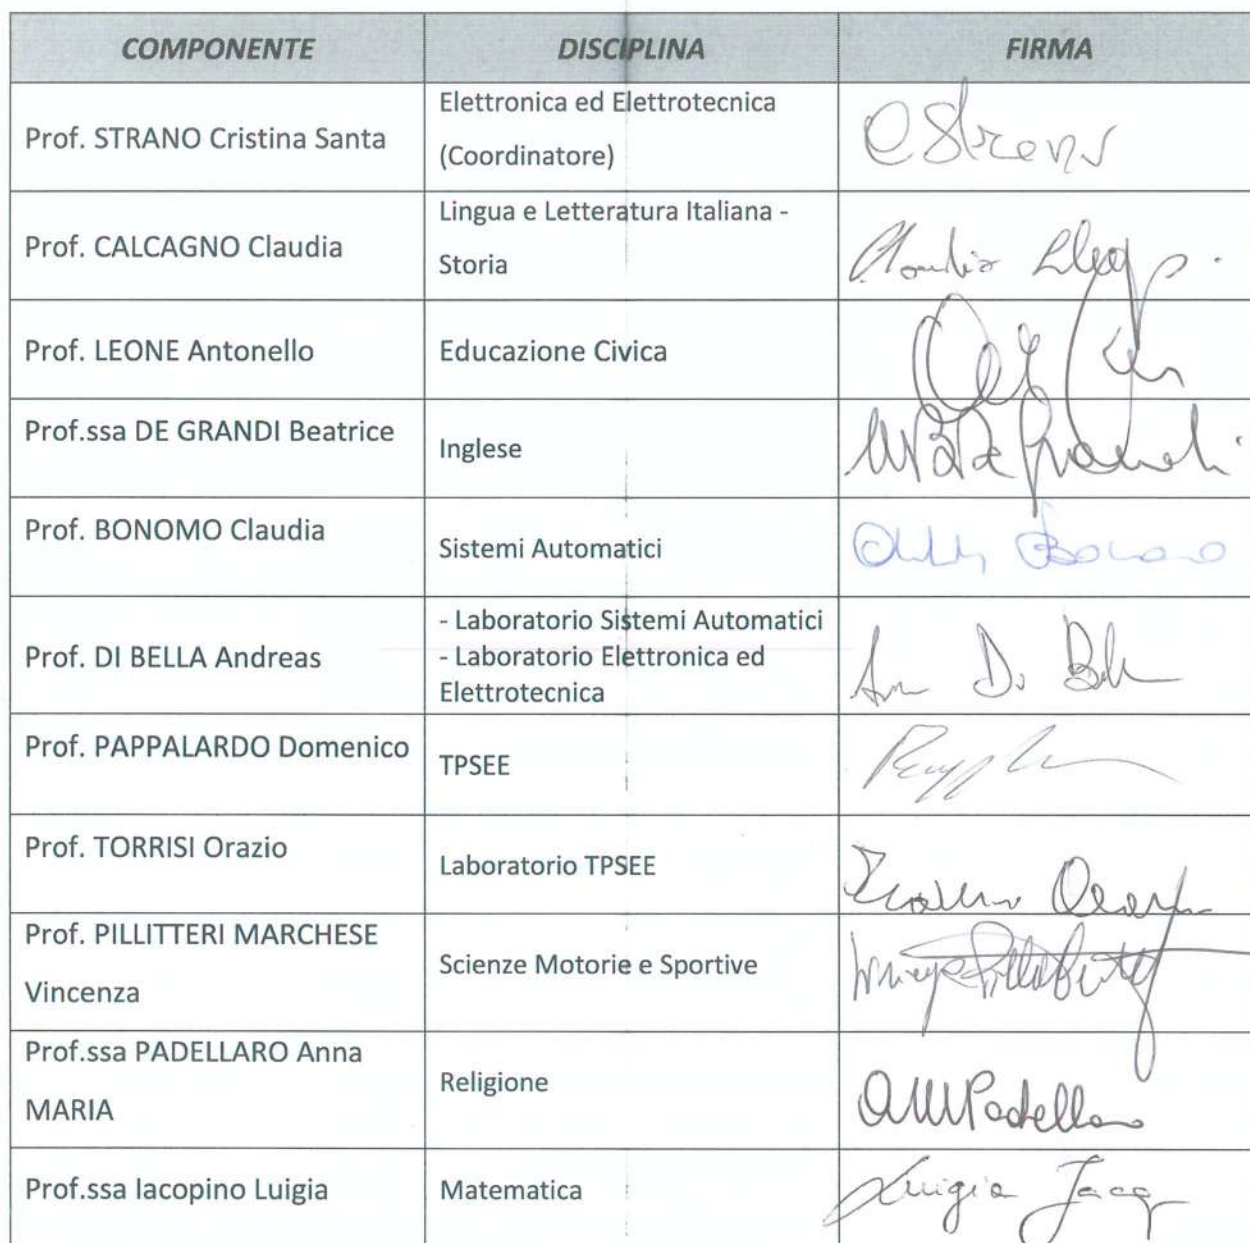 COMPONENTE DISCIPLINA FIRMA
Prof. STRANO Cristina Santa
Elettronica ed Elettrotecnica
(Coordinatore)
Prof. CALCAGNO Claudia
Lingua e Letteratura Italiana -
Storia
Claudia
Prof. LEONE Antonello
Educazione Civica
Prof.ssa DE GRANDI Beatrice
Inglese
Prof. BONOMO Claudia
Sistemi Automatici
Bonomo
Prof. DI BELLA Andreas
- Laboratorio Sistemi Automatici
- Laboratorio Elettronica ed
Elettrotecnica
Di
Prof. PAPPALARDO Domenico
TPSEE
Prof. TORRISI Orazio
Laboratorio TPSEE
Prof. PILLITTERI MARCHESE
Vincenza
Scienze Motorie e Sportive
Prof.ssa PADELLARO Anna
MARIA
Religione
AMPadellaro
Prof.ssa Iacopino Luigia
Matematica
Luigia